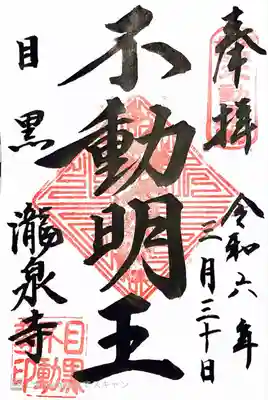 奉拝
令和六年
三月三十日
不動明王
目黒
瀧泉寺
目黒
不動